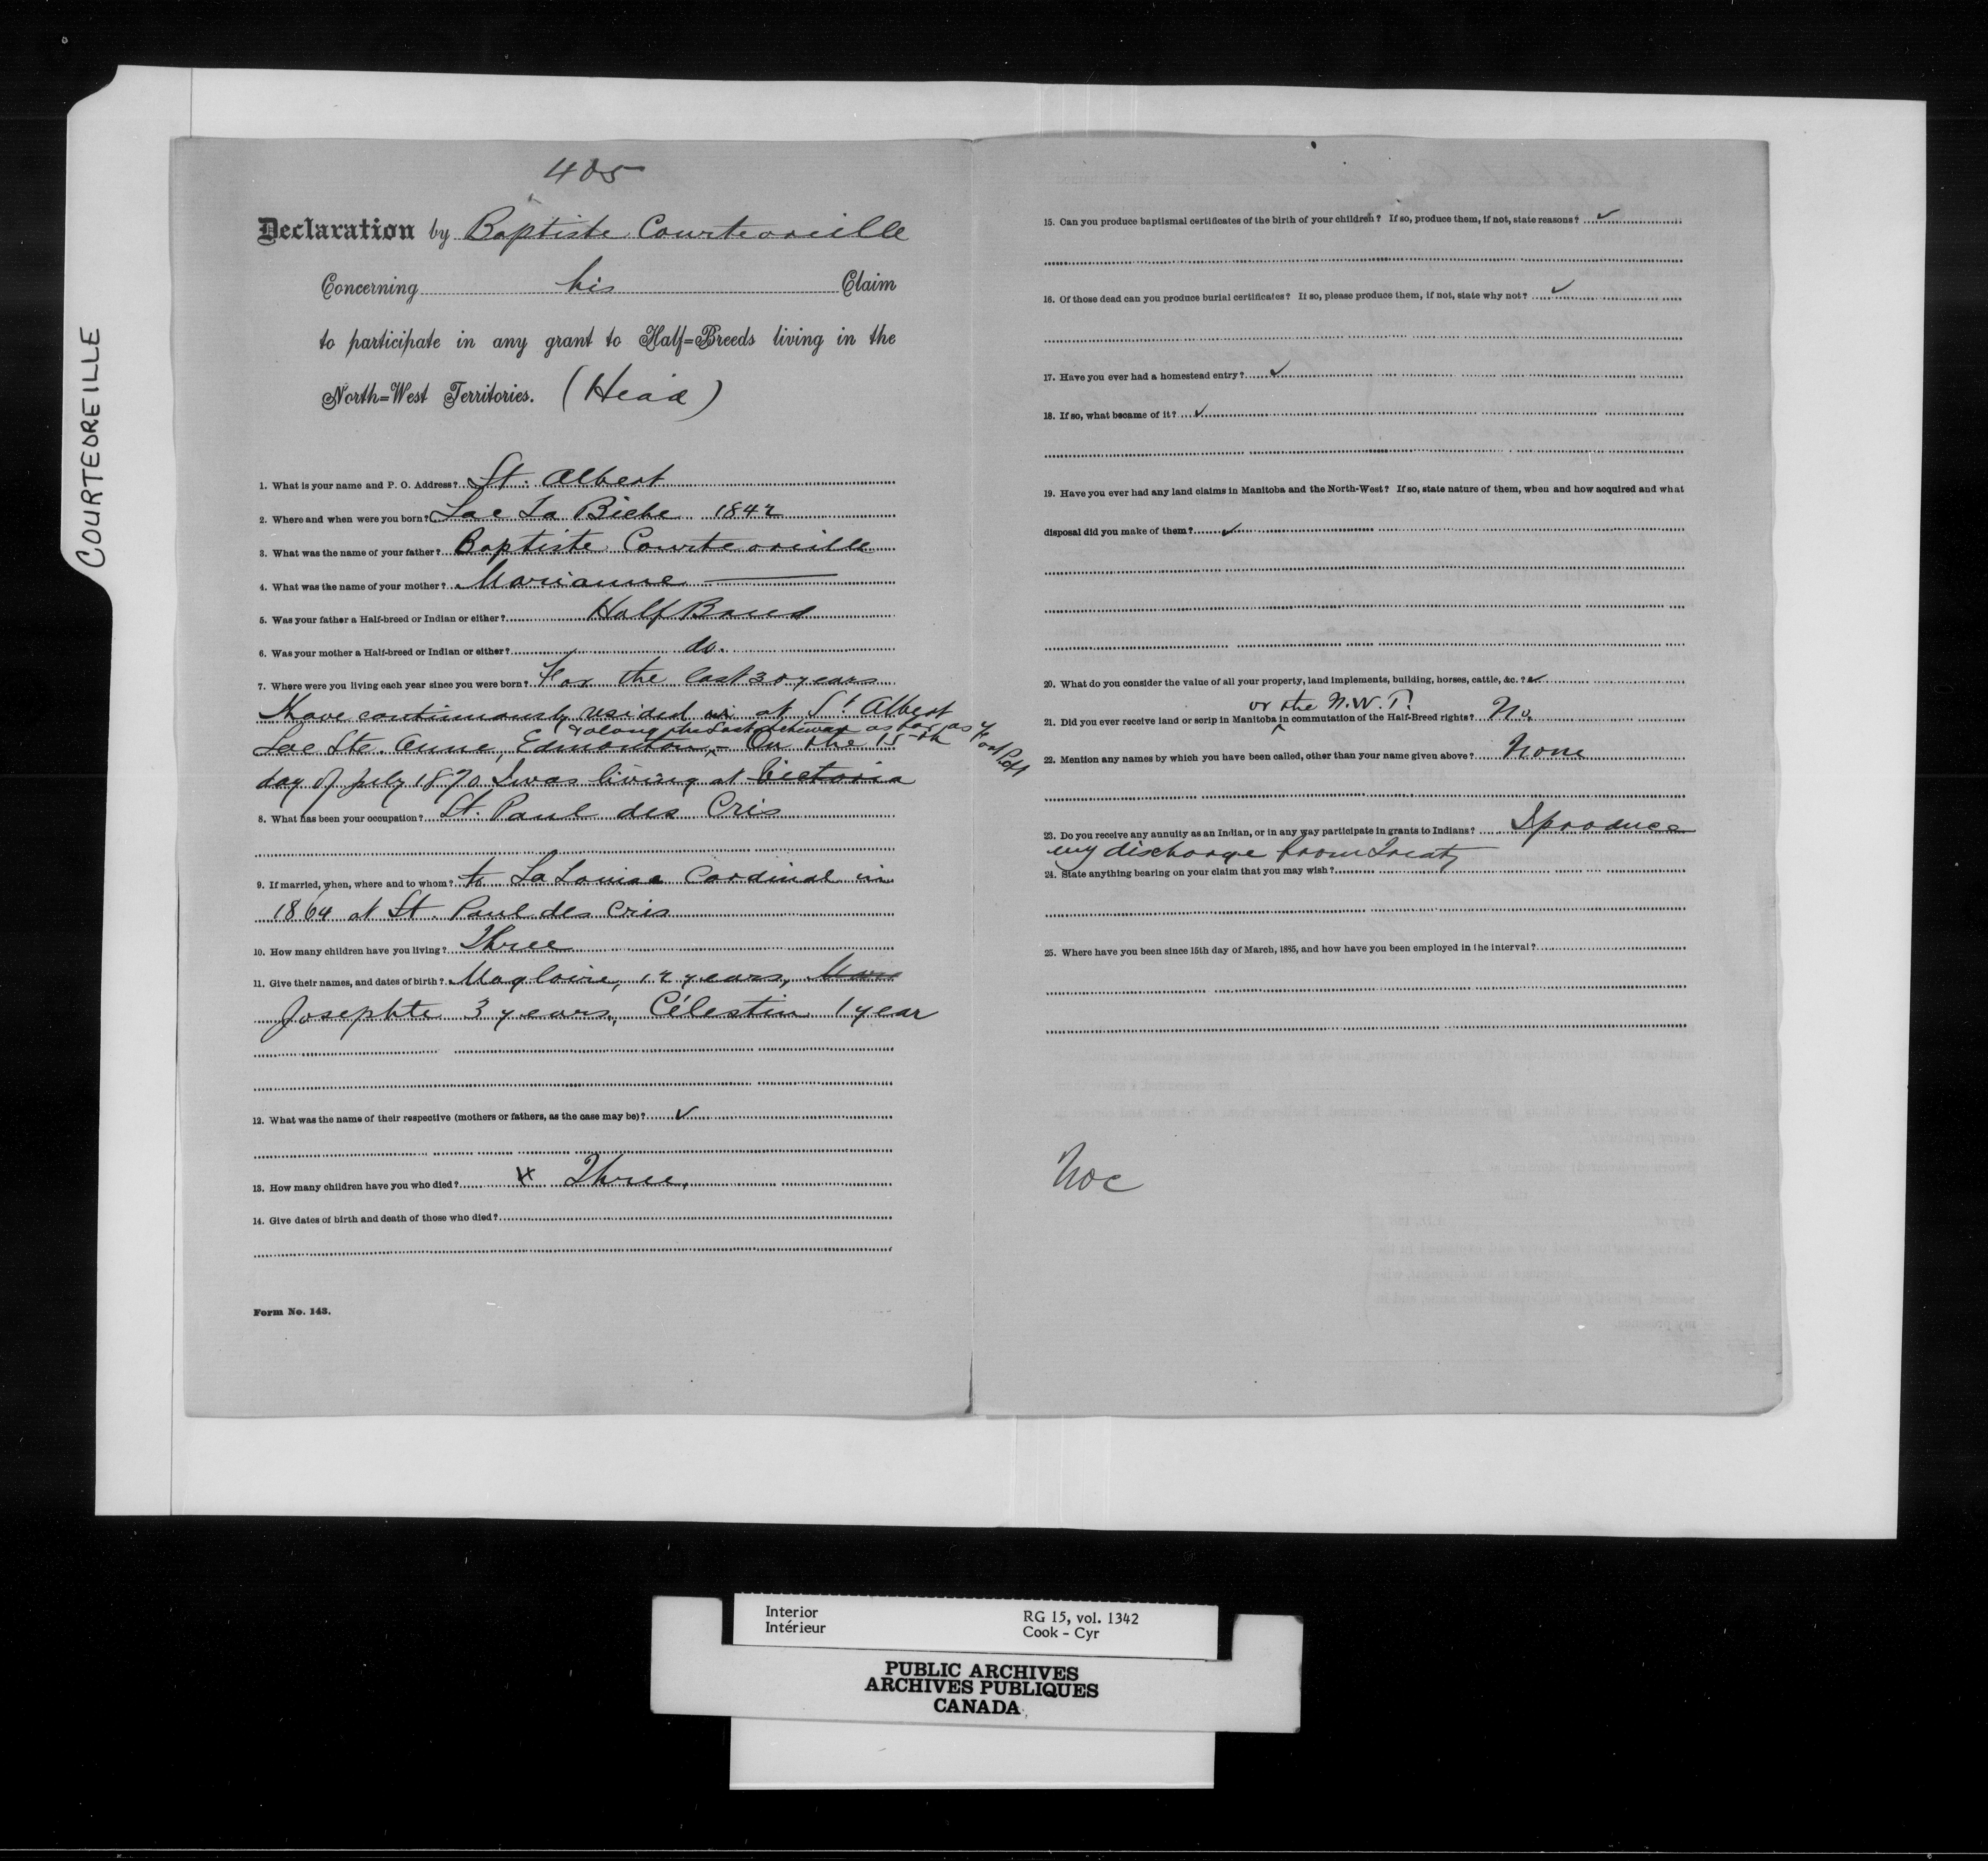 COURTEOREILLE
405
Declaration by Baptiste Courteoreille
Concerning his Claim
to participate in any grant to Half=Breeds living in the
North=West Territories. (Head)
1. What is your name and P. O. Address? St. Albert
2. Where and when were you born? Lac La Biche 1842
3. What was the name of your father? Baptiste Courteoreille
4. What was the name of your mother? Marianne ———
5. Was your father a Half-breed or Indian or either? Half Breed
6. Was your mother a Half-breed or Indian or either? do.
7. Where were you living each year since you were born? For the last 30 years
Have continuously resided in at St Albert
& along the Saskatchewan as far as Fort Pitt
Lac Ste. Anne, Edmonton, - On the 15th
day of July 1870 I was living at Victoria
8. What has been your occupation? St. Paul des Cris
9. If married, when, where and to whom? to La Louise Cardinal in
1864 at St. Paul des Cris
10. How many children have you living? Three
11. Give their names, and dates of birth? Magloire, 12 years, Mari
Josephte 3 years, Célestin 1 year
12. What was the name of their respective (mothers or fathers, as the case may be)? ✓
13. How many children have you who died? Three,
14. Give dates of birth and death of those who died?
Form No. 143.
15. Can you produce baptismal certificates of the birth of your children? If so, produce them, if not, state reasons? ✓
16. Of those dead can you produce burial certificates? If so, please produce them, if not, state why not? ✓
17. Have you ever had a homestead entry? ✓
18. If so, what became of it? ✓
19. Have you ever had any land claims in Manitoba and the North-West? If so, state nature of them, when and how acquired and what
disposal did you make of them? ✓
20. What do you consider the value of all your property, land implements, building, horses, cattle, &c.? ✓
or the N.W.T.
21. Did you ever receive land or scrip in Manitoba in commutation of the Half-Breed rights? No.
22. Mention any names by which you have been called, other than your name given above? None
23. Do you receive any annuity as an Indian, or in any way participate in grants to Indians? I produce
my discharge from Treaty
24. State anything bearing on your claim that you may wish?
25. Where have you been since 15th day of March, 1885, and how have you been employed in the interval?
Interior
Intérieur
RG 15, vol. 1342
Cook - Cyr
PUBLIC ARCHIVES
ARCHIVES PUBLIQUES
CANADA